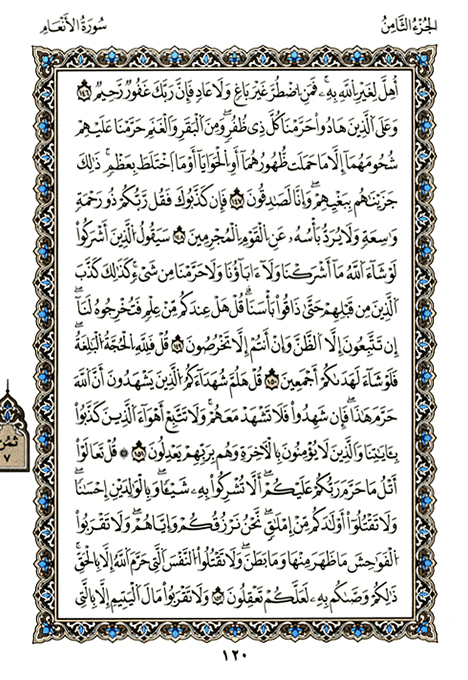 سُورَةُ الأَنْعَامِ
الجُزْءُ الثَّامِنُ
أُهِلَّ لِغَيْرِ اِللَّهِ بِهِۦ فَمَنُ اُضْطُرَّ غَيْرَ بَاغٍ وَلَا عَادٍ فَإِنَّ رَبَّكَ غَفُورٌ رَّحِيمٌ
وَعَلَى اَلَّذِينَ هَادُواْ حَرَّمْنَا كُلَّ ذِى ظُفُرٍ وَمِنَ اَلْبَقَرِ وَالْغَنَمِ حَرَّمْنَا عَلَيْهِمْ
شُحُومَهُمَا إِلَّا مَا حَمَلَتْ ظُهُورُهُمَا أَوِ اِلْحَوَايَا أَوْ مَا اَخْتَلَطَ بِعَظْمٍ ذَٰلِكَ
جَزَيْنَٰهُم بِبَغْيِهِمْ وَإِنَّا لَصَٰدِقُونَ فَإِن كَذَّبُوكَ فَقُل رَّبُّكُمْ ذُو رَحْمَةٍ
وَٰسِعَةٍ وَلَا يُرَدُّ بَأْسُهُۥ عَنِ اِلْقَوْمِ اِلْمُجْرِمِينَ سَيَقُولُ اُلَّذِينَ أَشْرَكُواْ
لَوْ شَآءَ اَللَّهُ مَآ أَشْرَكْنَا وَلَآ ءَابَآؤُنَا وَلَا حَرَّمْنَا مِن شَىْءٍ كَذَٰلِكَ كَذَّبَ
اَلَّذِينَ مِن قَبْلِهِمْ حَتَّىٰ ذَاقُواْ بَأْسَنَا قُلْ هَلْ عِندَكُم مِّنْ عِلْمٍ فَتُخْرِجُوهُ لَنَآ
إِن تَتَّبِعُونَ إِلَّا اَلظَّنَّ وَإِنْ أَنتُمْ إِلَّا تَخْرُصُونَ قُلْ فَلِلَّهِ اِلْحُجَّةُ اُلْبَٰلِغَةُ
فَلَوْ شَآءَ لَهَدَىٰكُمْ أَجْمَعِينَ قُلْ هَلُمَّ شُهَدَآءَكُمُ اُلَّذِينَ يَشْهَدُونَ أَنَّ اَللَّهَ
حَرَّمَ هَٰذَا فَإِن شَهِدُواْ فَلَا تَشْهَدْ مَعَهُمْ وَلَا تَتَّبِعْ أَهْوَآءَ اَلَّذِينَ كَذَّبُواْ
بِـَٔايَٰتِنَا وَالَّذِينَ لَا يُؤْمِنُونَ بِالْأٓخِرَةِ وَهُم بِرَبِّهِمْ يَعْدِلُونَ قُلْ تَعَالَوَاْ
أَتْلُ مَا حَرَّمَ رَبُّكُمْ عَلَيْكُمْ أَلَّا تُشْرِكُواْ بِهِۦ شَيْـًٔا وَبِالْوَٰلِدَيْنِ إِحْسَٰنًا
وَلَا تَقْتُلُوٓاْ أَوْلَٰدَكُم مِّنْ إِمْلَٰقٍ نَّحْنُ نَرْزُقُكُمْ وَإِيَّاهُمْ وَلَا تَقْرَبُواْ
اُلْفَوَٰحِشَ مَا ظَهَرَ مِنْهَا وَمَا بَطَنَ وَلَا تَقْتُلُواْ اُلنَّفْسَ اَلَّتِى حَرَّمَ اَللَّهُ إِلَّا بِالْحَقِّ
ذَٰلِكُمْ وَصَّىٰكُم بِهِۦ لَعَلَّكُمْ تَعْقِلُونَ وَلَا تَقْرَبُواْ مَالَ اَلْيَتِيمِ إِلَّا بِالَّتِى
١٢٠